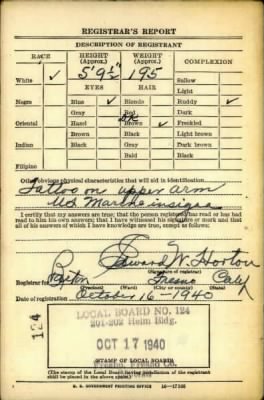 REGISTRAR'S REPORT
DESCRIPTION OF REGISTRANT
RACE HEIGHT (Approx.) WEIGHT (Approx.) COMPLEXION
White ✓ 5' 9½" 195 Sallow
EYES HAIR Light
Negro Blue ✓ Blonde Ruddy ✓
Gray Red Dark
Oriental Hazel DK Brown ✓ Freckled
Brown Black Light brown
Indian Black Gray Dark brown
Bald Black
Filipino
Other obvious physical characteristics that will aid in identification
Tattoo on upper arm
US Marine insignia
I certify that my answers are true; that the person registered has read or has had
read to him his own answers; that I have witnessed his signature or mark and that
all of his answers of which I have knowledge are true, except as follows:
Edward W. Horton
(Signature of registrar)
Registrar for Fresno Calif
(Precinct) (Ward) (City or county) (State)
Date of registration October 16-1940
LOCAL BOARD NO. 124
201-202 Helm Bldg.
124
OCT 17 1940
STAMP OF LOCAL BOARD
Fresno, Fresno Co.
(The stamp of the Local Board having jurisdiction of the registrant
shall be placed in the above space.)
U. S. GOVERNMENT PRINTING OFFICE 16-17105